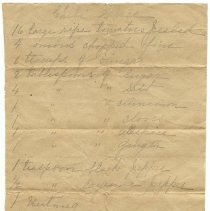 16 large ripe tomatoes peeled
4 onions chopped fine
6 teacups of vinegar
2 tablespoons of sugar
4 " " salt
1 " " cinnamon
" " cloves
" " allspice
" " ginger
1 teaspoon black pepper
" cayenne pepper
1 nutmeg